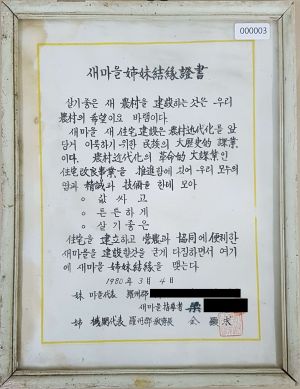 000003
새마을 姉妹結緣證書
살기좋은 새 農村을 建設하는것은 우리
農村의 希望이요 바램이다.
새마을 새 住宅建設은 農村近代化를 앞
당겨 이룩하기 위한 民族의 大歷史的 課業
이다. 農村近代化의 革命的 大課業인
住宅改良事業을 推進함에 있어 우리 모두의
땀과 精誠과 技術을 한데 모아
○ 값 싸 고
○ 튼 튼 하 게
○ 살 기 좋 은
住宅을 建立하고 營農과 協同에 便利한
새마을을 建設할것을 굳게 다짐하면서 여기
에 새마을 姉妹結緣을 맺는다.
1980 年 3 月 4 日
妹 마을代表 羅州郡
새마을指導者
姉 機關代表 羅州郡